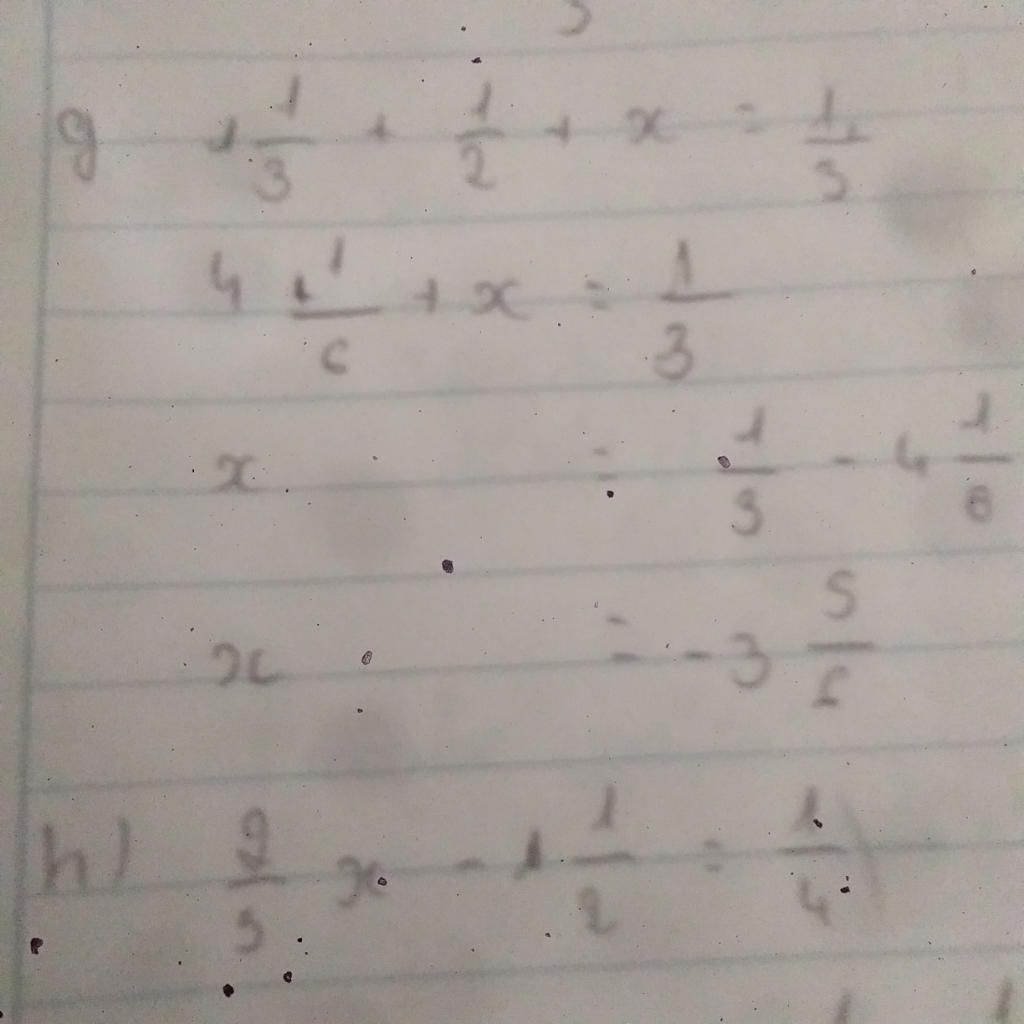 g 1 1/3 + 1/2 + x = 1/3
4 1/6 + x = 1/3
x = 1/3 - 4 1/6
x = - 3 5/6
h) 2/3 x - 1 1/2 = 1/4